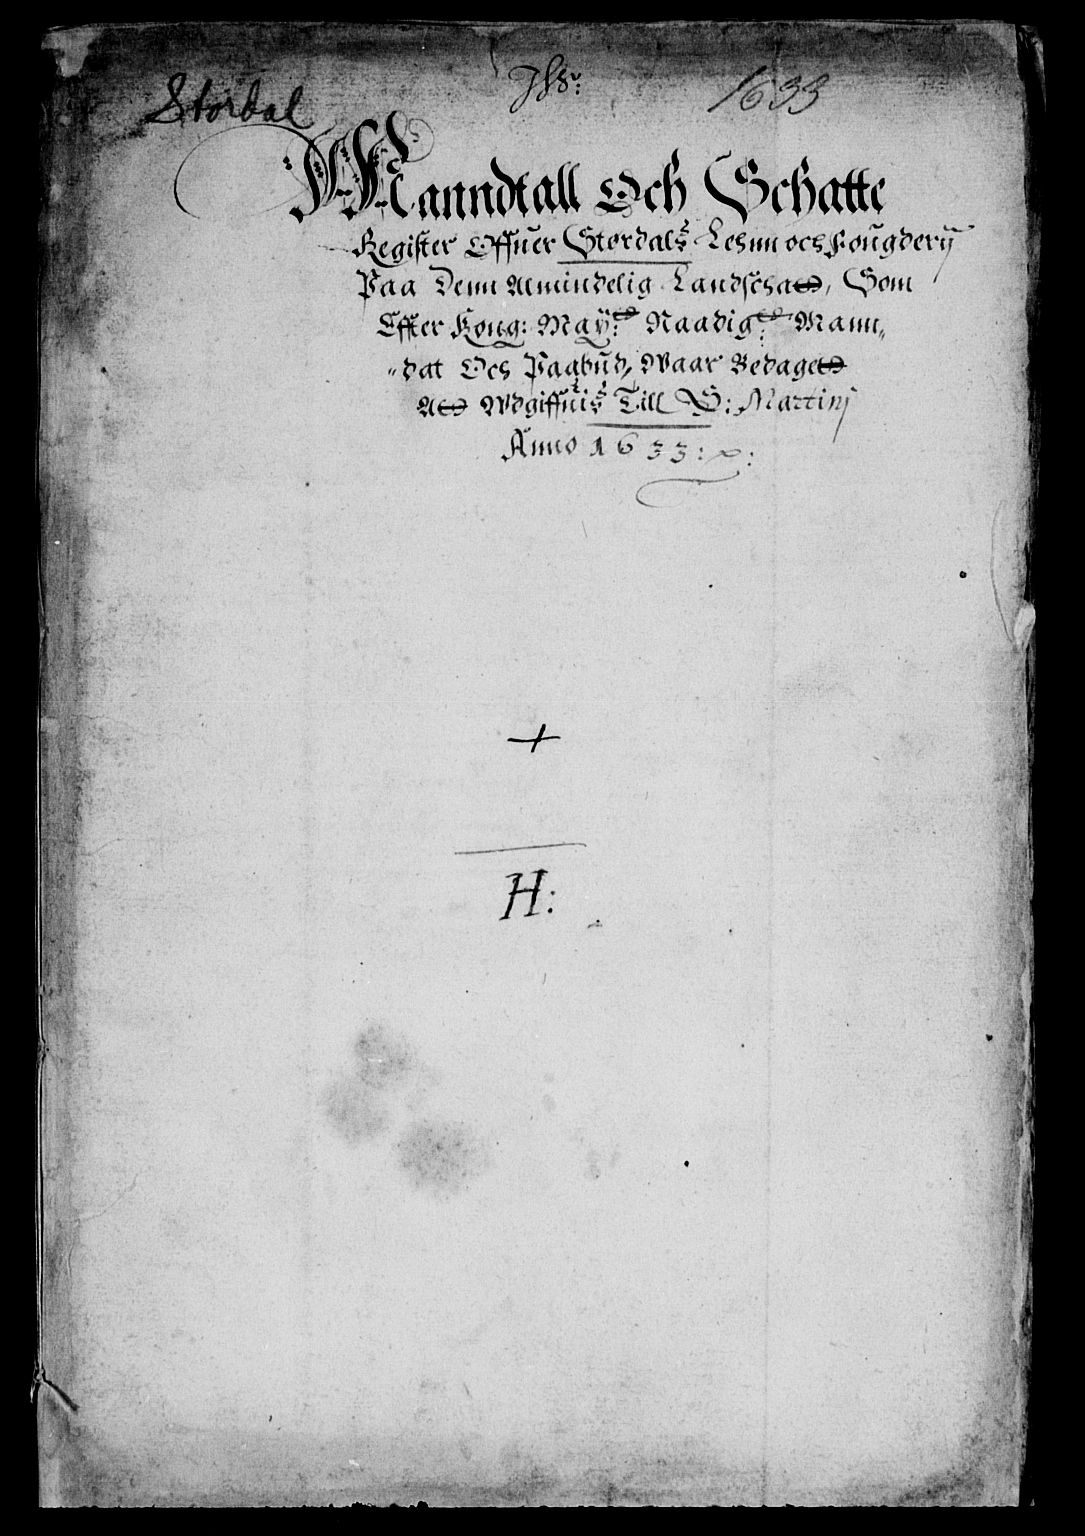 Jhs:
Stordal 1633
Manndtall Och Schatte
Register Offuer Stordals Lehnn och Fougderij
Paa Denn Almindelig Landscha, Som
Effter Kong: May: Naadig: Mann-
-dat Och Paabud, Waar Bedage
A Wdgiffuis Till S: Martinj
Anno 1633:
+
H: